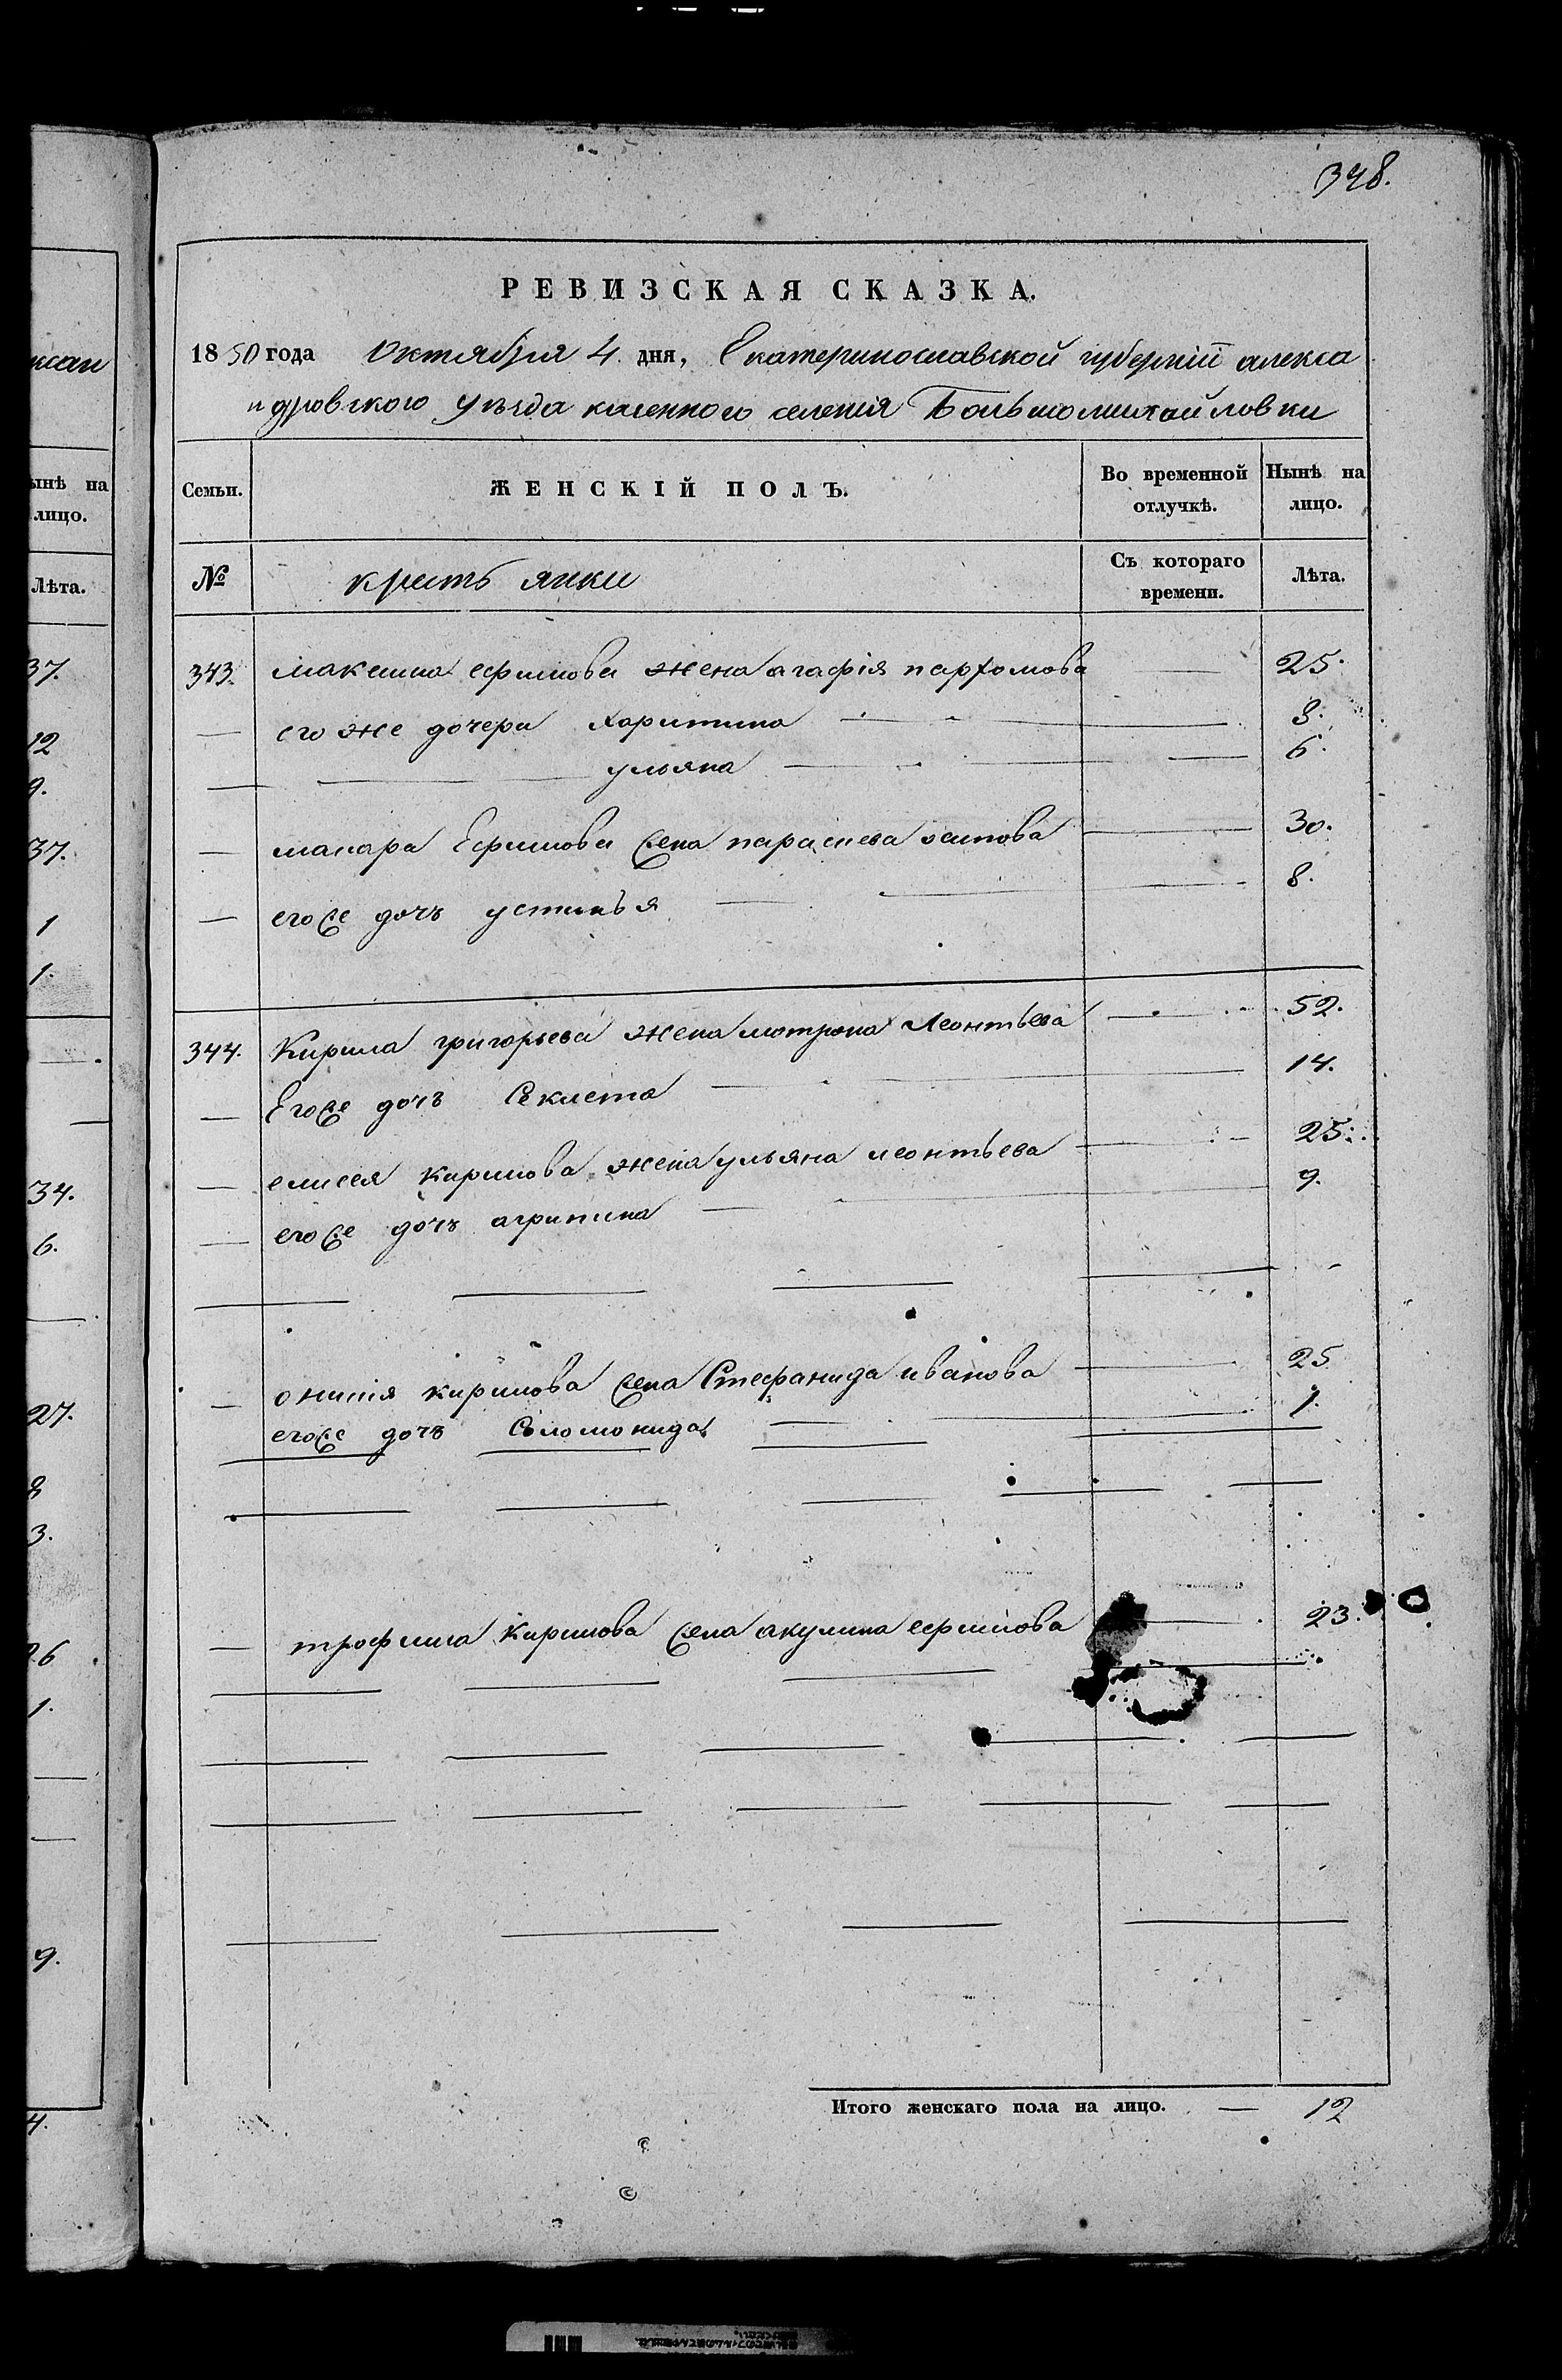 348.
РЕВИЗСКАЯ СКАЗКА.
1850 года Октября 4. дня, Екатеринославской губерніи алекса
ндровского уѣзда казенного селенія Большомихайловки
Семьи. ЖЕНСКІЙ ПОЛЪ. Во временной отлучкѣ. Нынѣ на лицо.
№ крестьянки Съ котораго времени. Лѣта.
343. максима ефимова жена агафія пархомова — 25.
— его же дочери Харитина — 8.
— ульяна — 6.
— макара Ефимова жена параскева осипова — 30.
— егоже дочь устинья — 8.
344. Кирила григорьева жена мотрона Леонтьева — 52.
— Егоже дочь Феклета — 14.
— елисея кирилова жена ульяна леонтьева — 25.
— егоже дочь агрипина — 9.
— онисия кирилова жена Стефанида иванова — 25
— егоже дочь Соломонида — 1.
— трофима Кирилова жена акулина ефимова — 23.
Итого женскаго пола на лицо. — 12
ксан
ынѣ на
лицо.
Лѣта.
37.
12
9.
37.
1
1.
34.
6.
27.
8
3.
26
1.
9.
4.